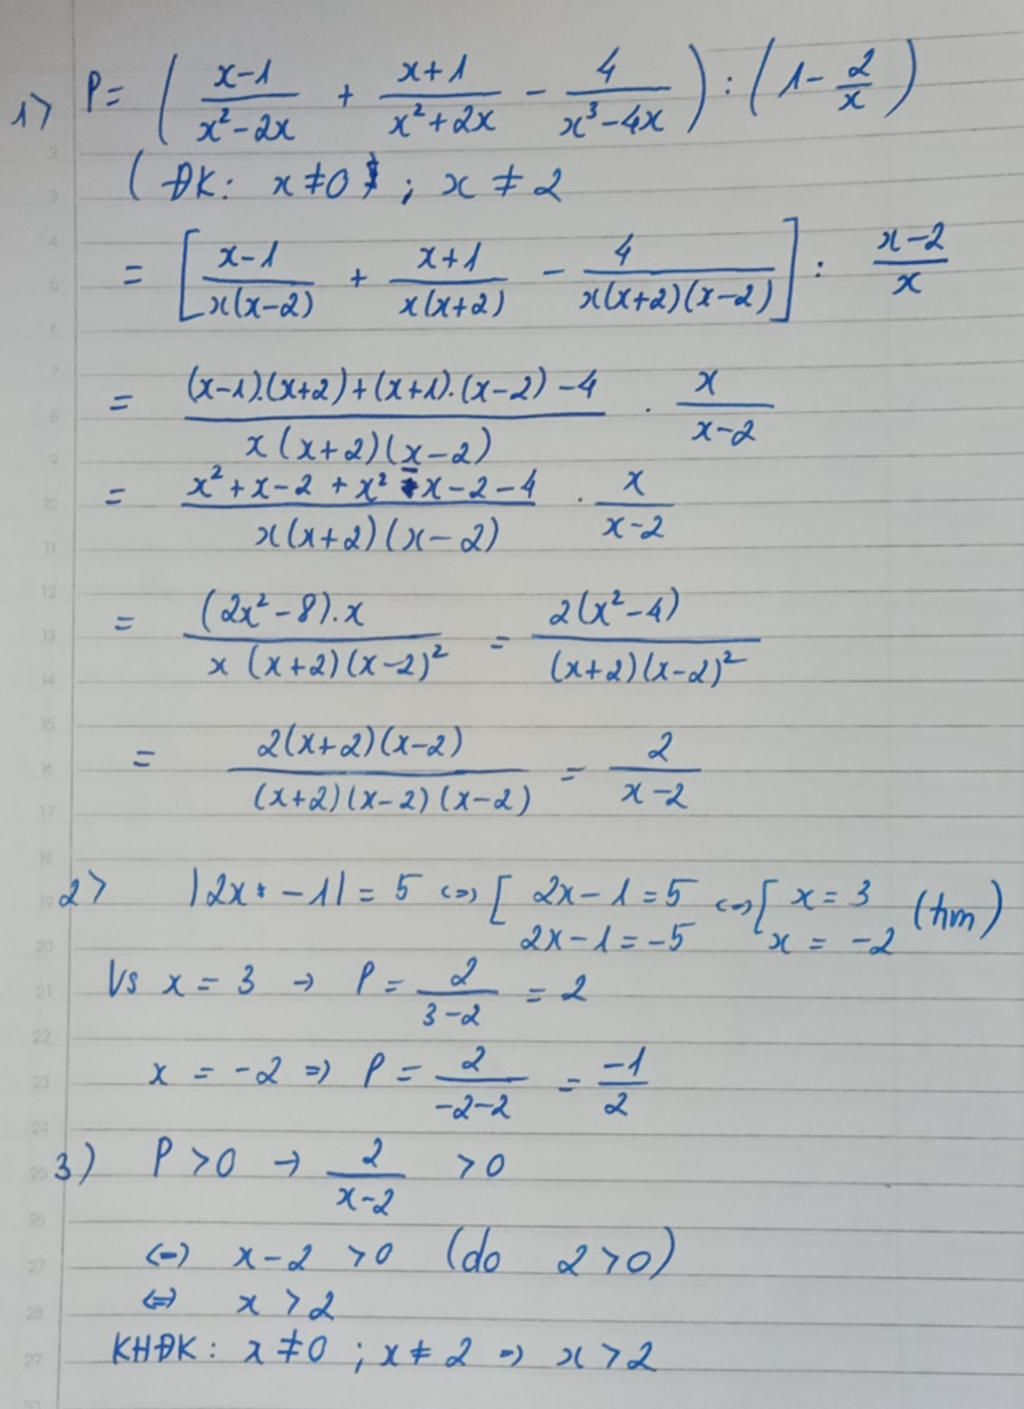 1> P = ( (x-1)/(x²-2x) + (x+1)/(x²+2x) - 4/(x³-4x) ) : (1 - 2/x)
( ĐK: x ≠ 0 ; x ≠ 2
= [ (x-1)/(x(x-2)) + (x+1)/(x(x+2)) - 4/(x(x+2)(x-2)) ] : (x-2)/x
= ((x-1).(x+2)+(x+1).(x-2)-4)/(x(x+2)(x-2)) . x/(x-2)
= (x²+x-2+x²-x-2-4)/(x(x+2)(x-2)) . x/(x-2)
= ((2x²-8).x)/(x(x+2)(x-2)²) = (2(x²-4))/((x+2)(x-2)²)
= (2(x+2)(x-2))/((x+2)(x-2)(x-2)) = 2/(x-2)
2> |2x-1| = 5 <=> [ 2x-1=5 <=> [ x=3 (tm)
2x-1=-5 x=-2
Vs x = 3 → P = 2/(3-2) = 2
x = -2 => P = 2/(-2-2) = -1/2
3) P > 0 → 2/(x-2) > 0
<=> x-2 > 0 (do 2>0)
<=> x > 2
KHĐK: x ≠ 0 ; x ≠ 2 => x > 2